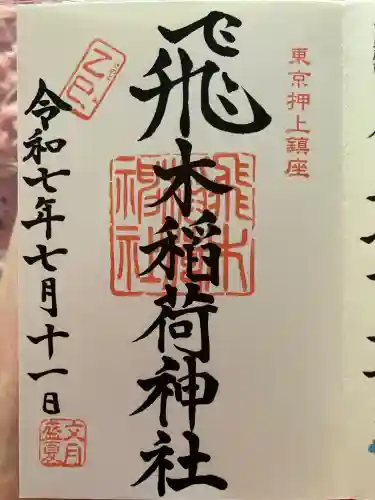 東京押上鎮座
飛木稲荷神社
飛木
稲荷
神社
令和七年七月十一日
文月
盛夏